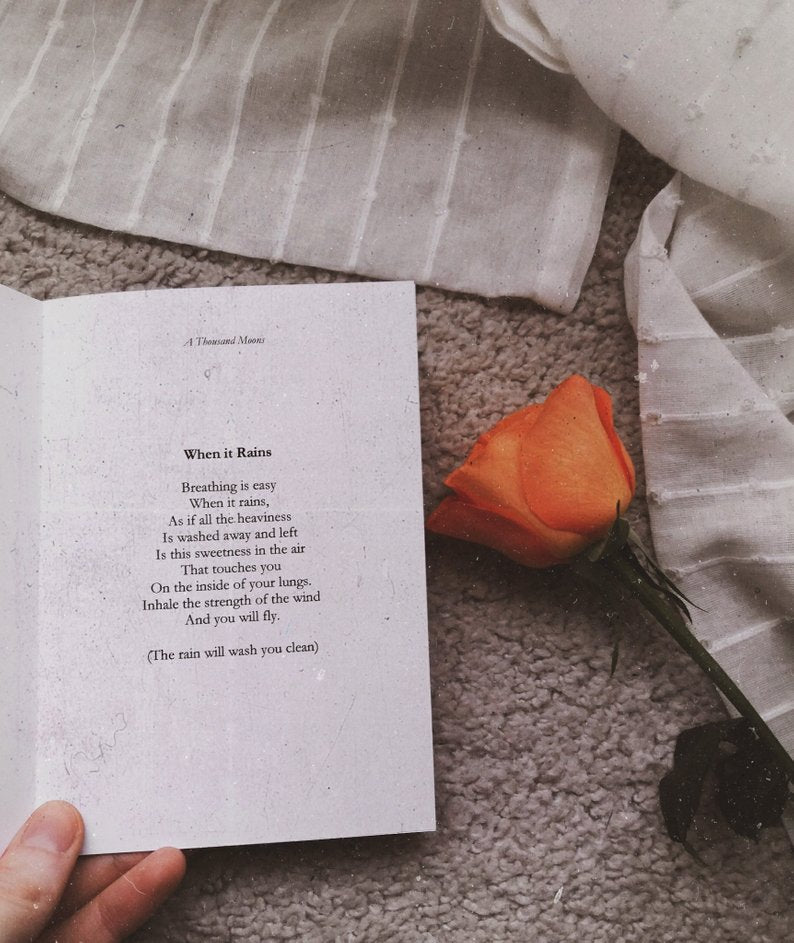 A Thousand Moons
When it Rains
Breathing is easy
When it rains,
As if all the heaviness
Is washed away and left
Is this sweetness in the air
That touches you
On the inside of your lungs.
Inhale the strength of the wind
And you will fly.
(The rain will wash you clean)